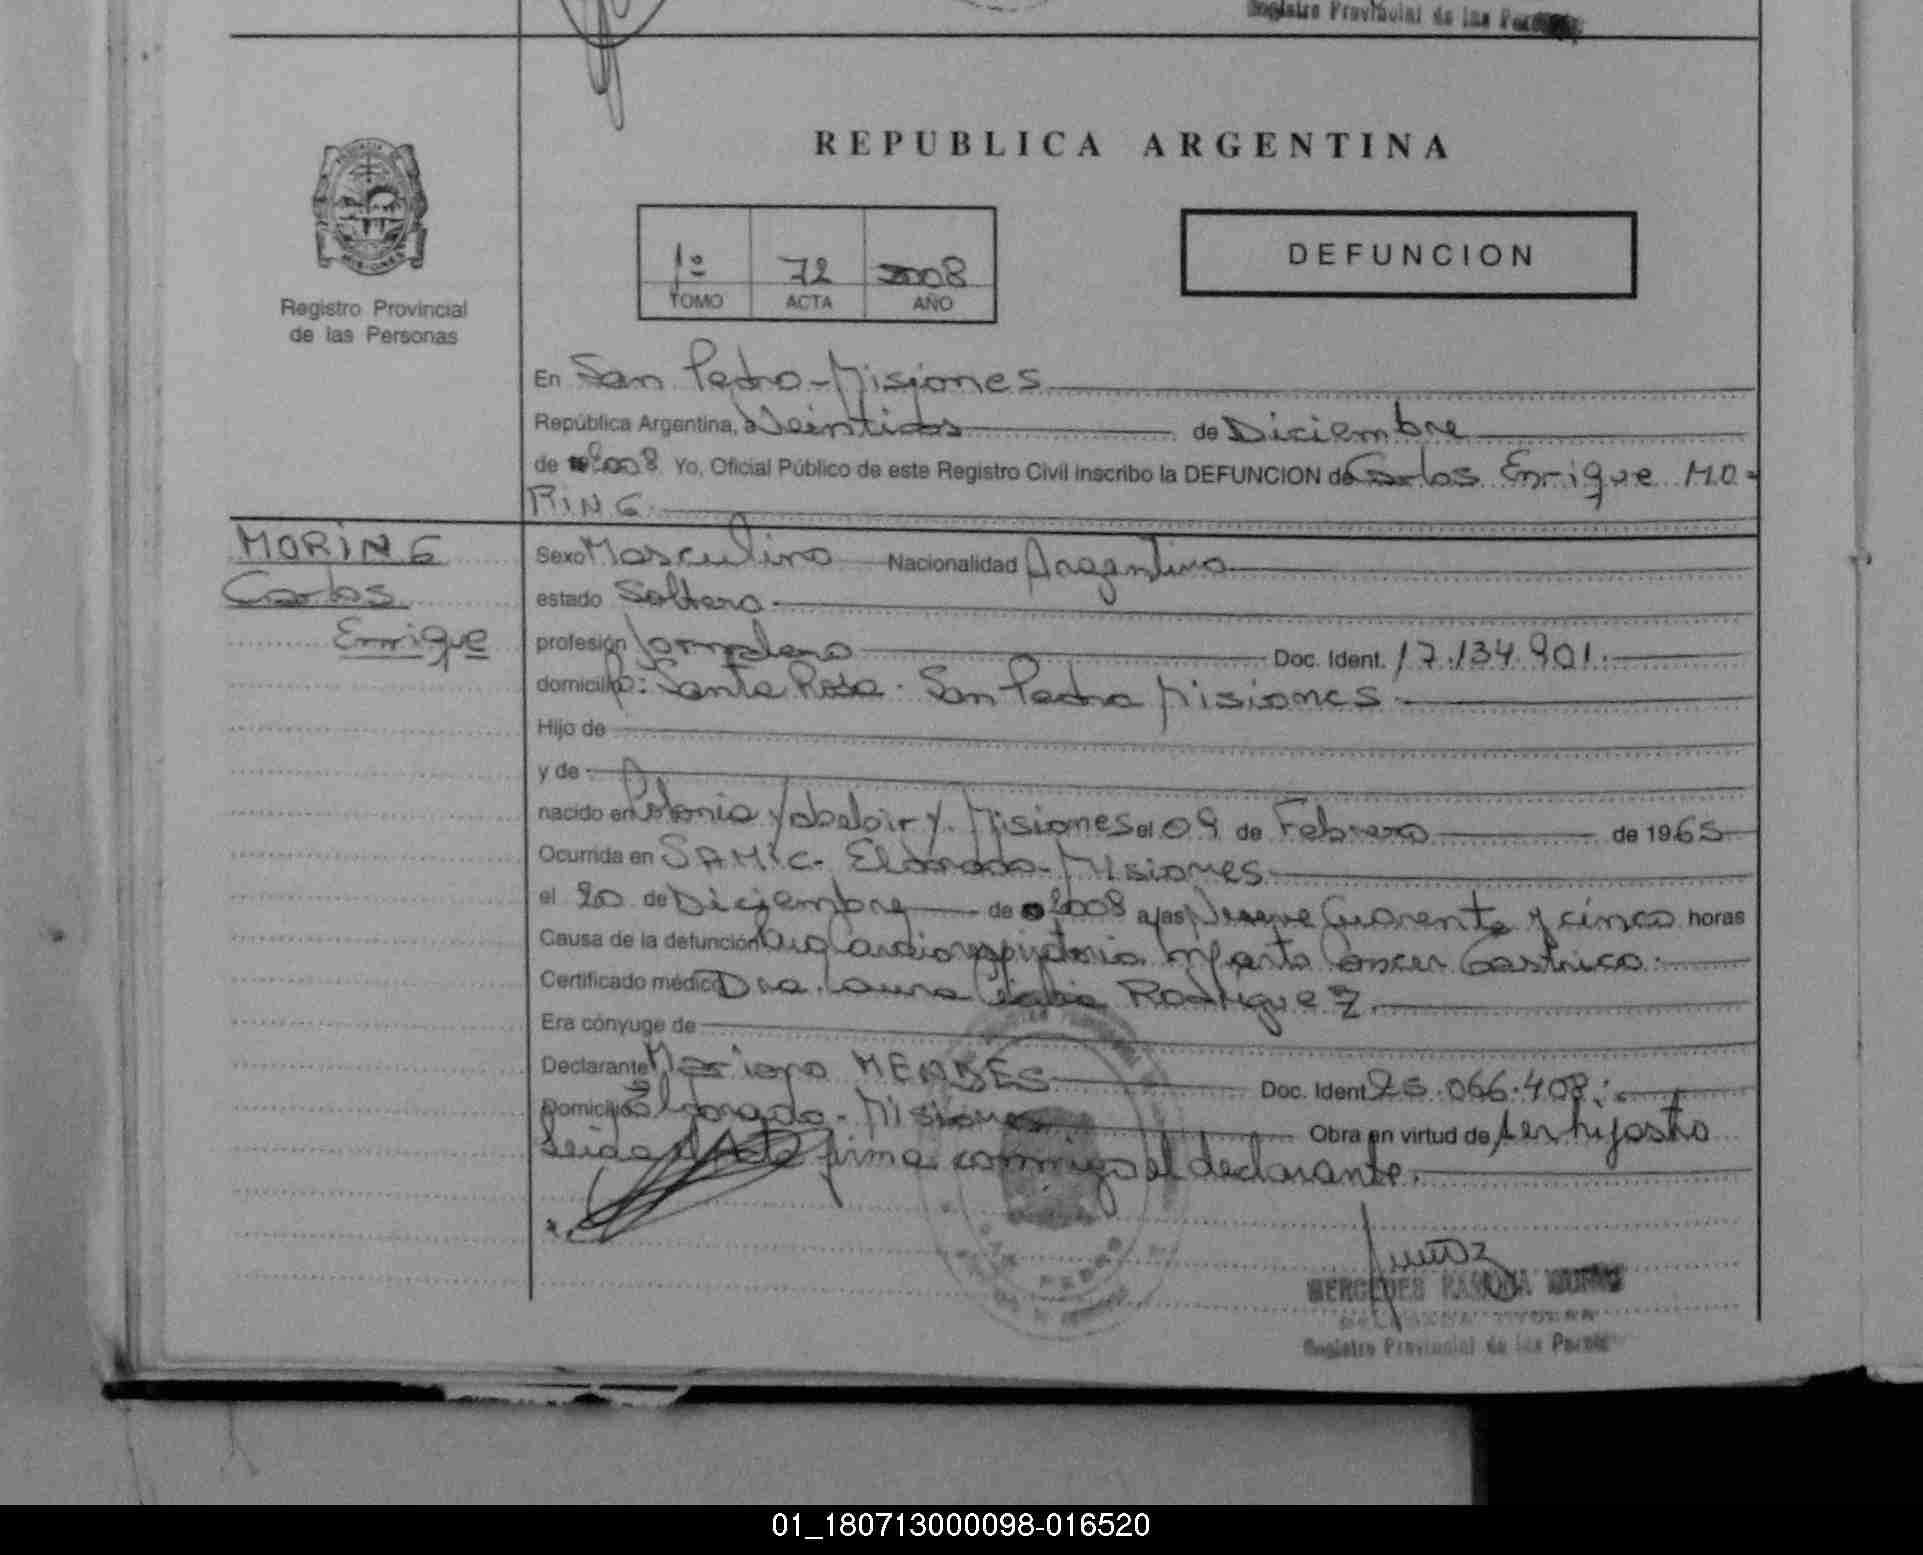 Registro Provincial de las Personas
REPUBLICA ARGENTINA
1º 72 2008
TOMO ACTA AÑO
DEFUNCION
Registro Provincial
de las Personas
En San Pedro - Misiones
República Argentina, a Veintidos de Diciembre
de 2008 Yo, Oficial Público de este Registro Civil inscribo la DEFUNCION de Carlos Enrique MO-
RING
MORING
Carlos
Enrique
Sexo Masculino Nacionalidad Argentina
estado Soltero
profesión Jornalero Doc. Ident. 17.134.901.
domicilio: Santa Rosa. San Pedro Misiones
Hijo de
y de
nacido en Colonia Yabebiry. Misiones el 09 de Febrero de 1965
Ocurrida en SAMIC. Eldorado - Misiones
el 20 de Diciembre de 2008 a las Nueve Cuarenta y cinco horas
Causa de la defunción Cardiorespiratorio Infarto Cancer Gastrico.
Certificado médico Dra. Laura Rodriguez
Era cónyuge de
Declarante Mariano MENDES Doc. Ident. 25.066.408.
Domicilio Eldorado - Misiones Obra en virtud de ser hijastro
Leida el Acta firma conmigo el declarante.
Muñoz
MERCEDES RAMONA MUÑOZ
Registro Provincial de las Person
01_180713000098-016520